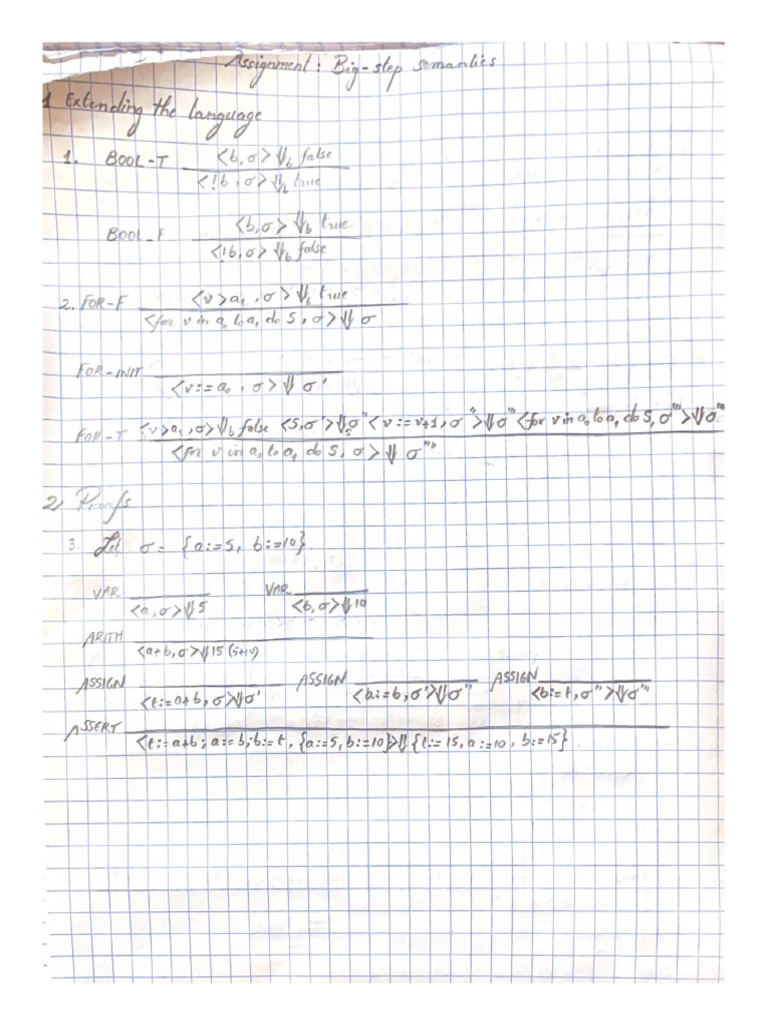 Assignment: Big-step semantics
1 Extending the language
1. BOOL-T <b,σ>⇓b false
<!b,σ>⇓b true
BOOL_F <b,σ>⇓b true
<!b,σ>⇓b false
2. FOR-F <v>a₁,σ>⇓b true
<for v in a₀ to a₁ do S,σ>⇓σ
FOR-INIT
<v:=a₀,σ>⇓σ'
FOR-T <v>a₁,σ>⇓b false <S,σ'>⇓σ'' <v:=v+1,σ''>⇓σ''' <for v in a₀ to a₁ do S,σ'''>⇓σ''''
<for v in a₀ to a₁ do S,σ>⇓σ''''
2 Proofs
3. Let σ = {a:=5, b:=10}
VAR VAR
<a,σ>⇓5 <b,σ>⇓10
ARITH
<a+b,σ>⇓15 (5+10)
ASSIGN ASSIGN ASSIGN
<t:=a+b,σ>⇓σ' <a:=b,σ'>⇓σ'' <b:=t,σ''>⇓σ'''
ASSERT
<t:=a+b; a:=b; b:=t, {a:=5, b:=10}>⇓{t:=15, a:=10, b:=15}